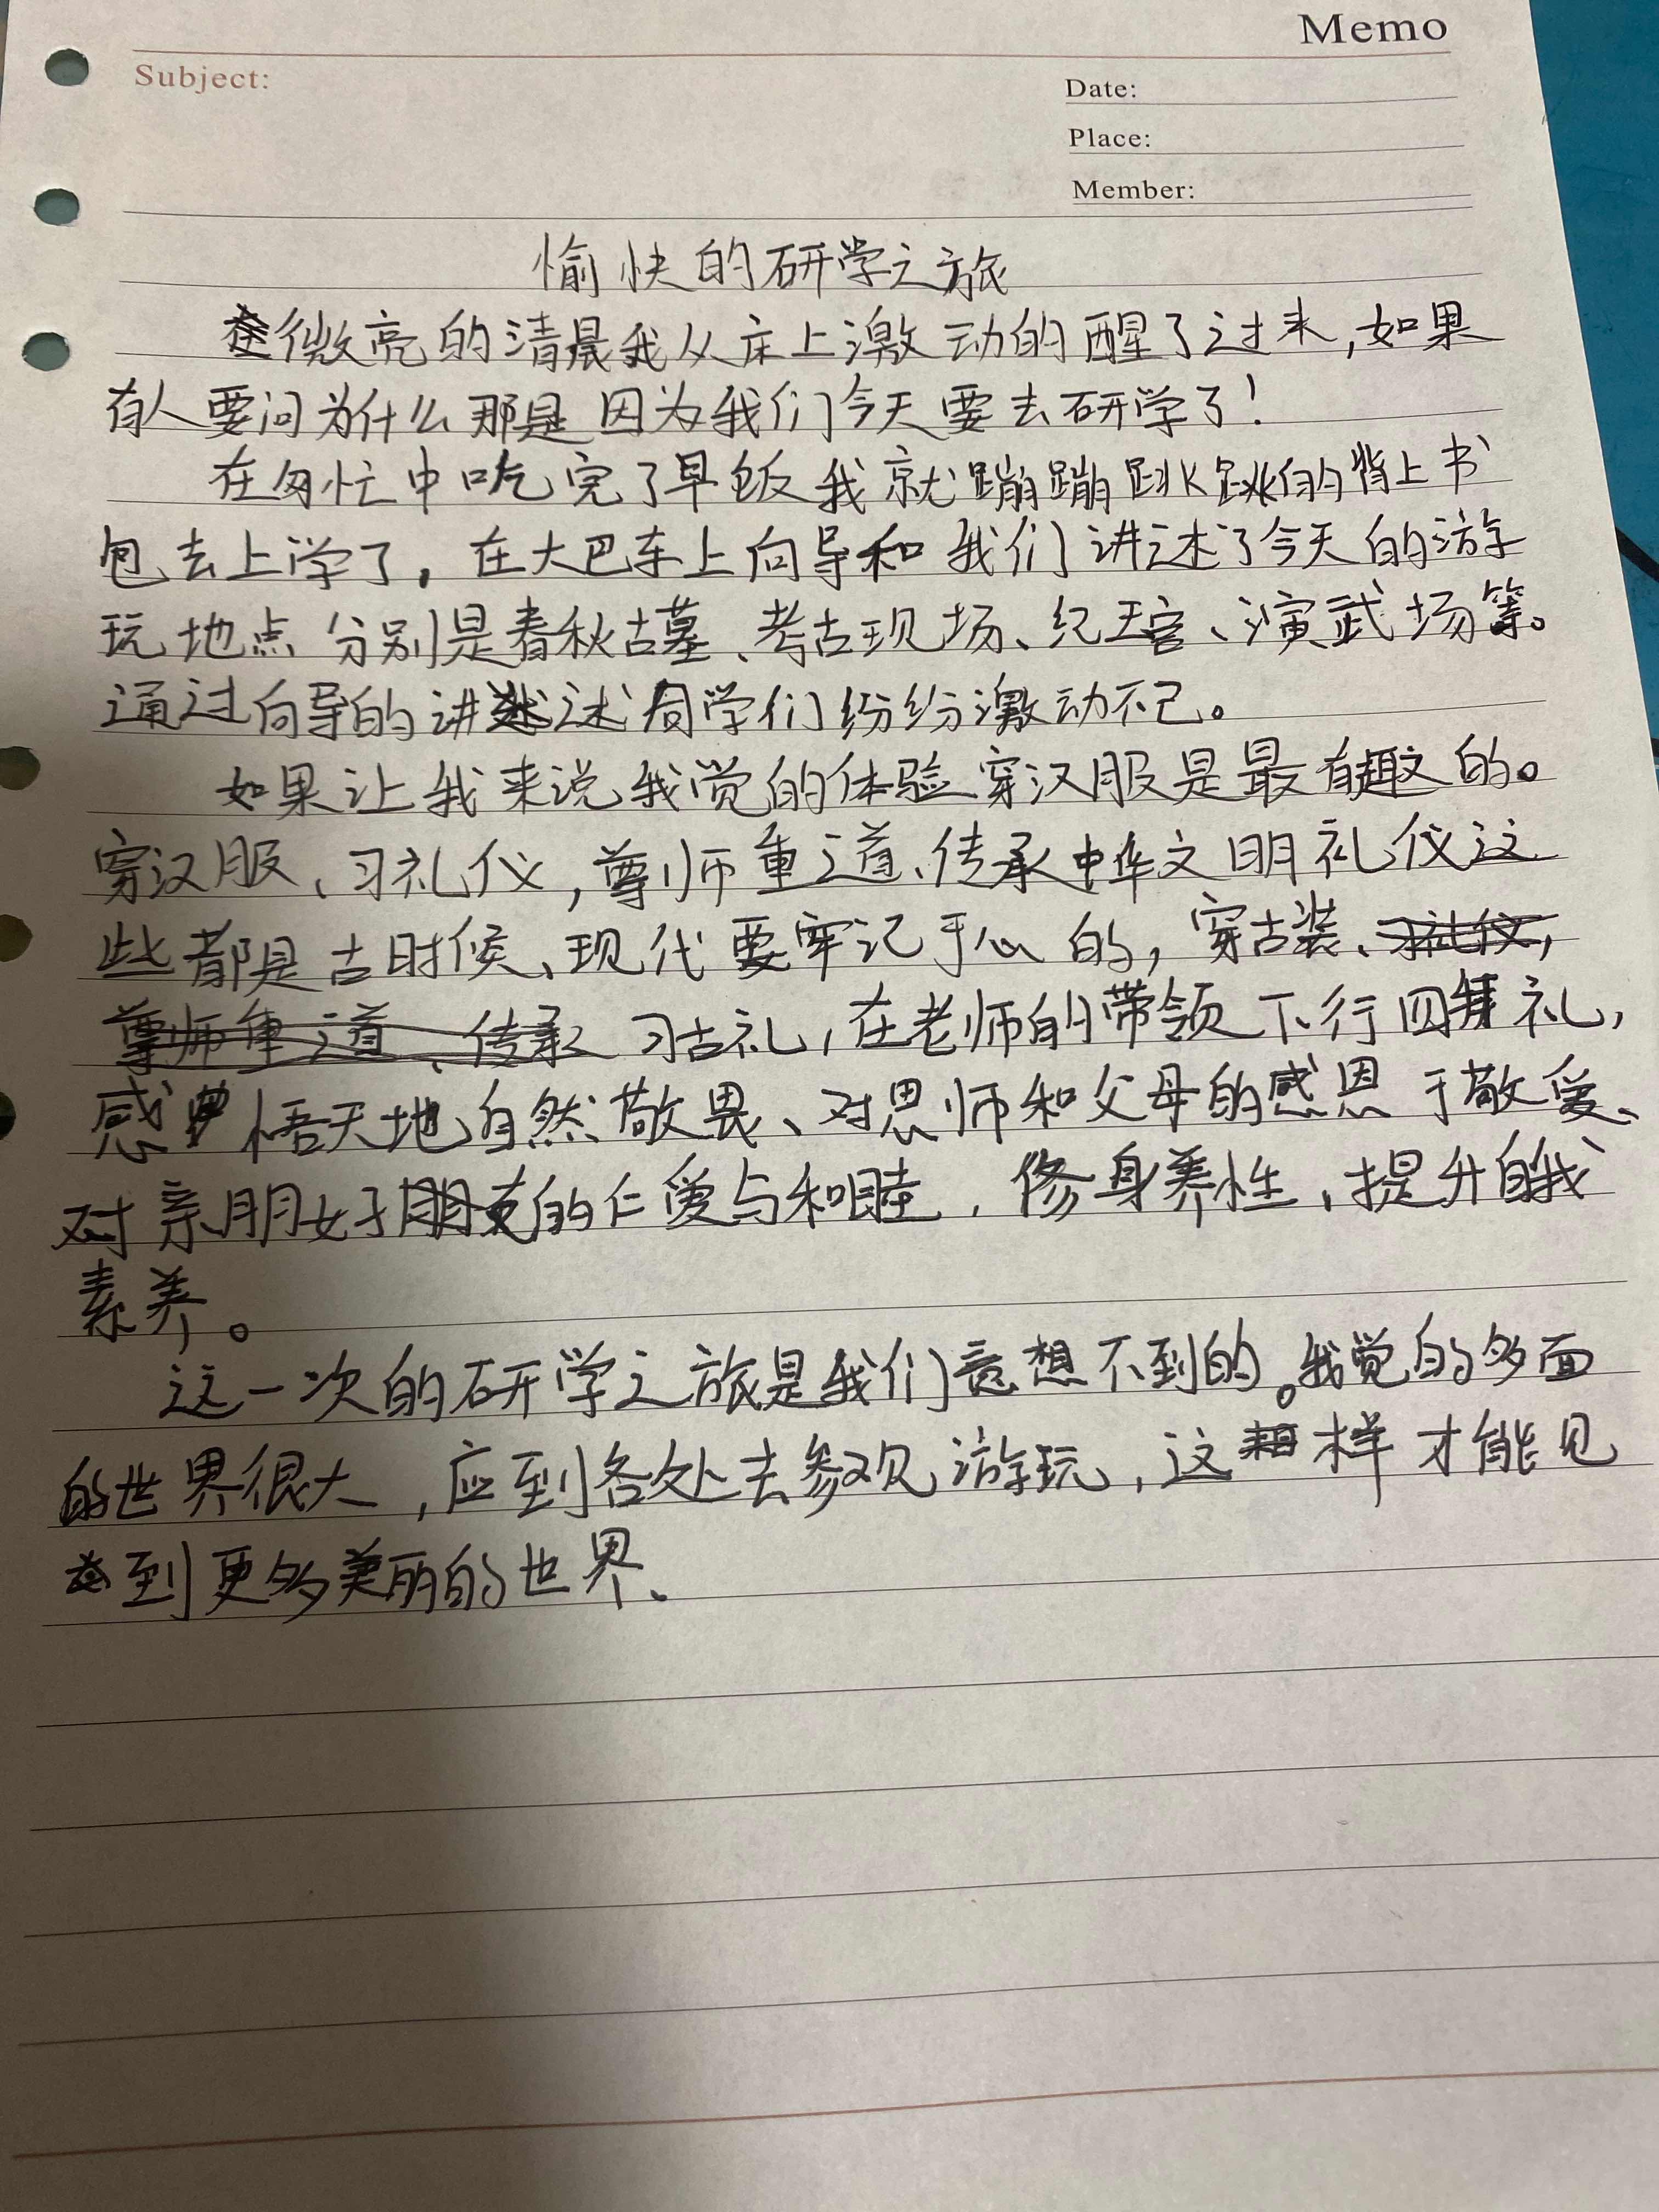 Memo
Subject:
Date:
Place:
Member:
愉快的研学之旅
在微亮的清晨我从床上激动的醒了过来,如果
有人要问为什么那是因为我们今天要去研学了!
在匆忙中吃完了早饭我就蹦蹦跳跳的背上书
包去上学了,在大巴车上向导和我们讲述了今天的游
玩地点分别是春秋古墓、考古现场、纪王宫、演武场等。
通过向导的讲述同学们纷纷激动不已。
如果让我来说我觉的体验穿汉服是最有趣的。
穿汉服、习礼仪,尊师重道、传承中华文明礼仪这
些都是古时候、现代要牢记于心的,穿古装、习礼仪,
尊师重道、传承习古礼,在老师的带领下行四拜礼,
感悟天地自然敬畏、对恩师和父母的感恩于敬爱、
对亲朋好朋友的仁爱与和睦,修身养性,提升自我
素养。
这一次的研学之旅是我们意想不到的。我觉的多面
的世界很大,应到各处去参观游玩,这样才能见
到更多美丽的世界、